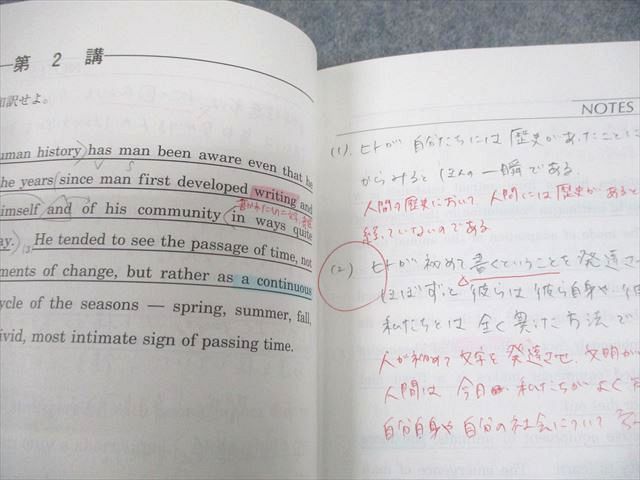 第 2 講
和訳せよ。
uman history has man been aware even that he
he years since man first developed writing and
imself and of his community in ways quite
ay. (2) He tended to see the passage of time, not
ments of change, but rather as a continuous
ycle of the seasons — spring, summer, fall,
ivid, most intimate sign of passing time.
V S
NOTES
(1). ヒトが 自分たちには 歴史があったこと
からみると ほんの一瞬である.
人間の歴史において, 人間には歴史があると
経っていないのである
(2) ヒトが 初めて 書くということを 発達さ
ほぼずっと 彼らは 彼ら自身や
私たちとは 全く異った方法で
人が初めて 文字を 発達させ 文明が
人間は 今日 私たちが よく
自分自身や 自分の社会について